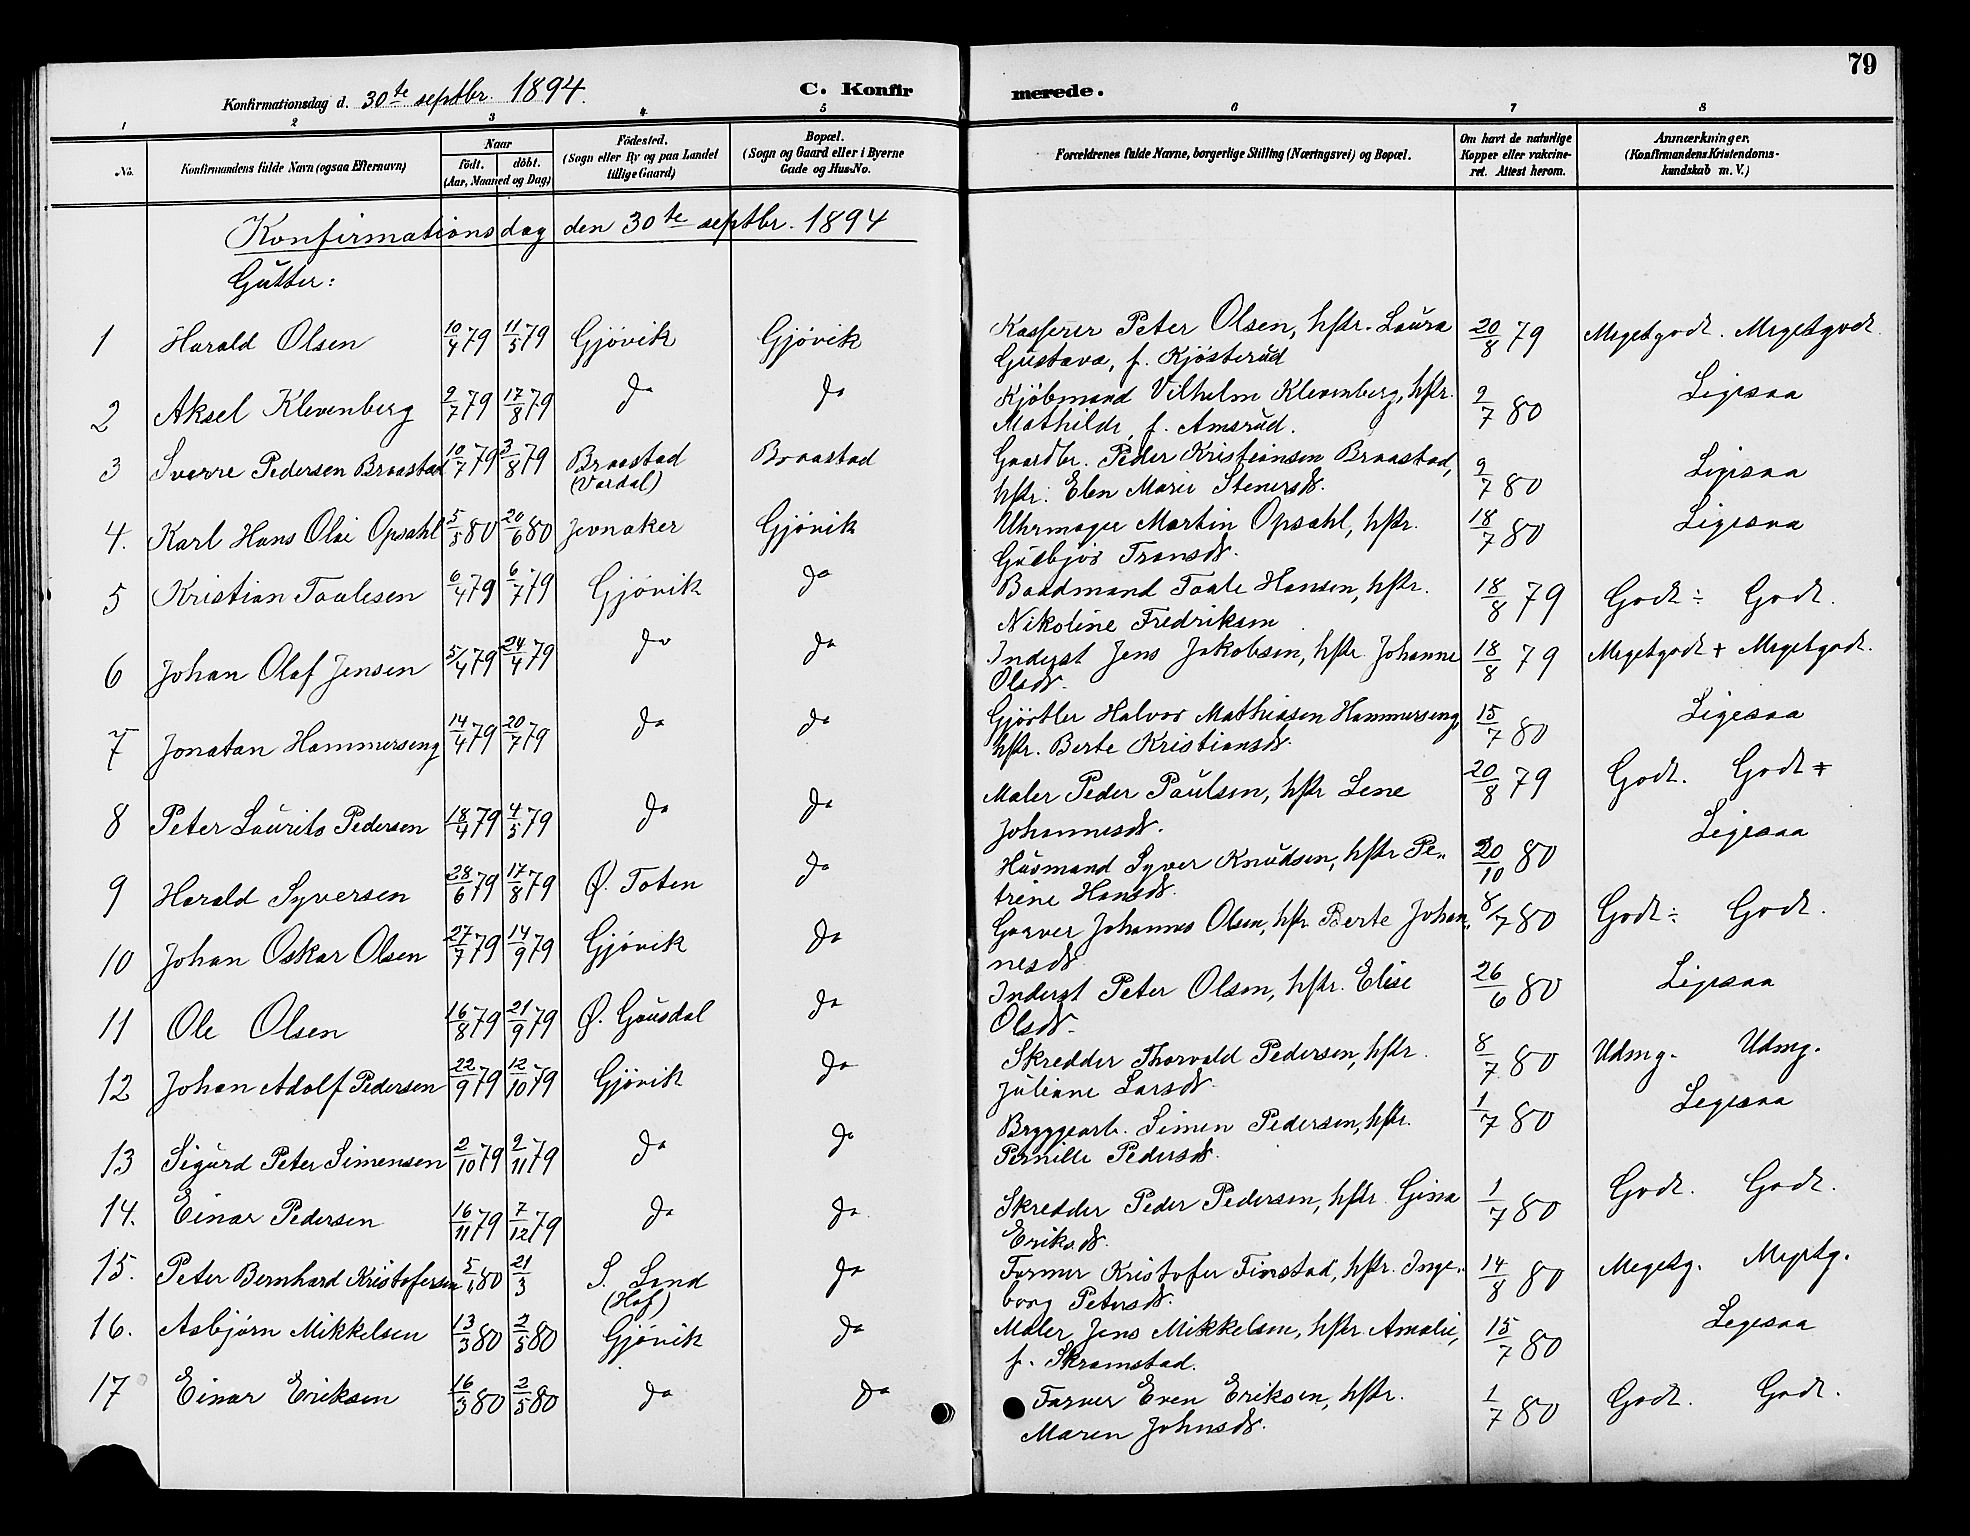 79
Konfirmationsdag d. 30te septbr. 1894.
C. Konfirmerede.
1 2 3 4 5 6 7 8
No.
Konfirmandens fulde Navn (ogsaa Efternavn)
Naar
födt. döbt.
(Aar, Maaned og Dag)
Födested.
(Sogn eller By og paa Landet
tillige Gaard)
Bopæl.
(Sogn og Gaard eller i Byerne
Gade og Hus-No.
Forældrenes fulde Navne, borgerlige Stilling (Næringsvei) og Bopæl.
Om havt de naturlige
Kopper eller vakcine-
ret. Attest herom.
Anmærkninger.
(Konfirmandens Kristendoms-
kundskab m. V.)
Konfirmationsdag den 30te septbr. 1894
Gutter:
1 Harald Olsen 10/4 79 11/5 79 Gjövik Gjövik Kasserer Peter Olsen, hstr. Laura 20/8 79 Megetgodt. Megetgodt.
Gustava, f. Kjösterud
2 Aksel Klevenberg 2/7 79 17/8 79 do do Kjöbmand Vilhelm Klevenberg, hstr. 2/7 80 Ligesaa
Mathilde, f. Amsrud.
3 Sverre Pedersen Braastad 10/7 79 3/8 79 Braastad Braastad Gaardbr. Peder Kristiansen Braastad, 9/7 80 Ligesaa
(Vardal) hstr. Elen Marie Stenersdt.
4. Karl Hans Olai Opsahl 5/5 80 20/6 80 Jevnaker Gjövik Uhrmager Martin Opsahl, hstr. 18/7 80 Ligesaa
Gudbjör Transdt.
5 Kristian Taalesen 6/4 79 6/7 79 Gjövik do Baadmand Taale Hansen, hstr. 18/8 79 Godt ÷ Godt.
Nikoline Fredriksen
6 Johan Olaf Jensen 5/4 79 24/4 79 do do Inderst Jens Jakobsen, hstr. Johanne 18/8 79 Megetgodt + Megetgodt.
Olsdt.
7 Jonatan Hammerseng 14/4 79 20/7 79 do do Gjörtler Halvor Mathiasen Hammerseng, 15/7 80 Ligesaa
hstr. Berte Kristiansdt.
8 Peter Laurits Pedersen 18/4 79 4/5 79 do do Maler Peder Paulsen, hstr Lene 20/8 79 Godt. Godt +
Johannesdt.
9 Harald Syversen 28/6 79 17/8 79 Ø. Toten do Husmand Syver Knudsen, hstr Pe- 20/10 80 Ligesaa
trine Hansdt.
10 Johan Oskar Olsen 27/7 79 14/9 79 Gjövik do Garver Johannes Olsen, hstr Berte Johan- 8/7 80 Godt ÷ Godt.
nesdt
11 Ole Olsen 16/8 79 21/9 79 Ø. Gausdal do Inderst Peter Olsen, hstr. Elise 26/6 80 Ligesaa
Olsdt.
12 Johan Adolf Pedersen 22/9 79 12/10 79 Gjövik do Skredder Thorvald Pedersen, hstr. 8/7 80 Udmg. Udmg.
Juliane Larsdt.
13 Sigurd Peter Simensen 2/10 79 2/11 79 do do Bryggearb. Simen Pedersen, hstr. 1/7 80 Ligesaa
Pernille Pedersdt.
14. Einar Pedersen 16/11 79 7/12 79 do do Skredder Peder Pedersen, hstr. Gina 1/7 80 Godt. Godt.
Eriksdt.
15. Peter Bernhard Kristofersen 5/1 80 21/3 S. Land do Farmer Kristofer Finstad, hstr. Inge- 14/8 80 Megetg. Megetg.
(Hof) borg Petersdt.
16. Asbjørn Mikkelsen 13/3 80 2/5 80 Gjövik do Maler Jens Mikkelsen, hstr. Amalie, 15/7 80 Ligesaa
f. Skramstad.
17 Einar Eriksen 16/3 80 2/5 80 do do Farver Even Eriksen, hstr. 1/7 80 Godt. Godt.
Maren Johnsdt.